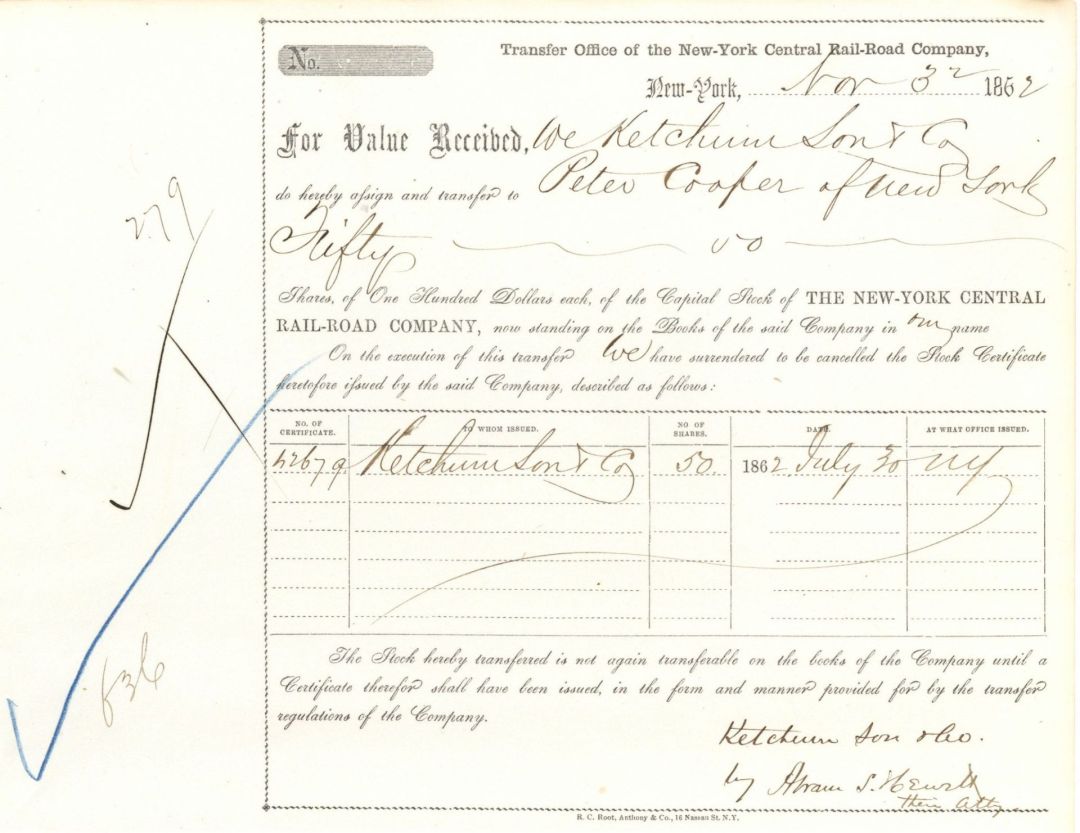 No.
Transfer Office of the New-York Central Rail-Road Company,
New-York, Nov 3 1862
For Value Received, We Ketchum Son & Co
do hereby assign and transfer to Peter Cooper of New York
Fifty 50
Shares, of One Hundred Dollars each, of the Capital Stock of THE NEW-YORK CENTRAL
RAIL-ROAD COMPANY, now standing on the Books of the said Company in our name
On the execution of this transfer We have surrendered to be cancelled the Stock Certificate
heretofore issued by the said Company, described as follows:
NO. OF CERTIFICATE. TO WHOM ISSUED. NO OF SHARES. DATE. AT WHAT OFFICE ISSUED.
12679 Ketchum Son & Co 50. 1862 July 30 NY
The Stock hereby transferred is not again transferable on the books of the Company until a
Certificate therefor shall have been issued, in the form and manner provided for by the transfer
regulations of the Company.
Ketchum Son & Co.
by Abram S. Hewitt
their Atty
R. C. Root, Anthony & Co., 16 Nassau St. N.Y.
279
636